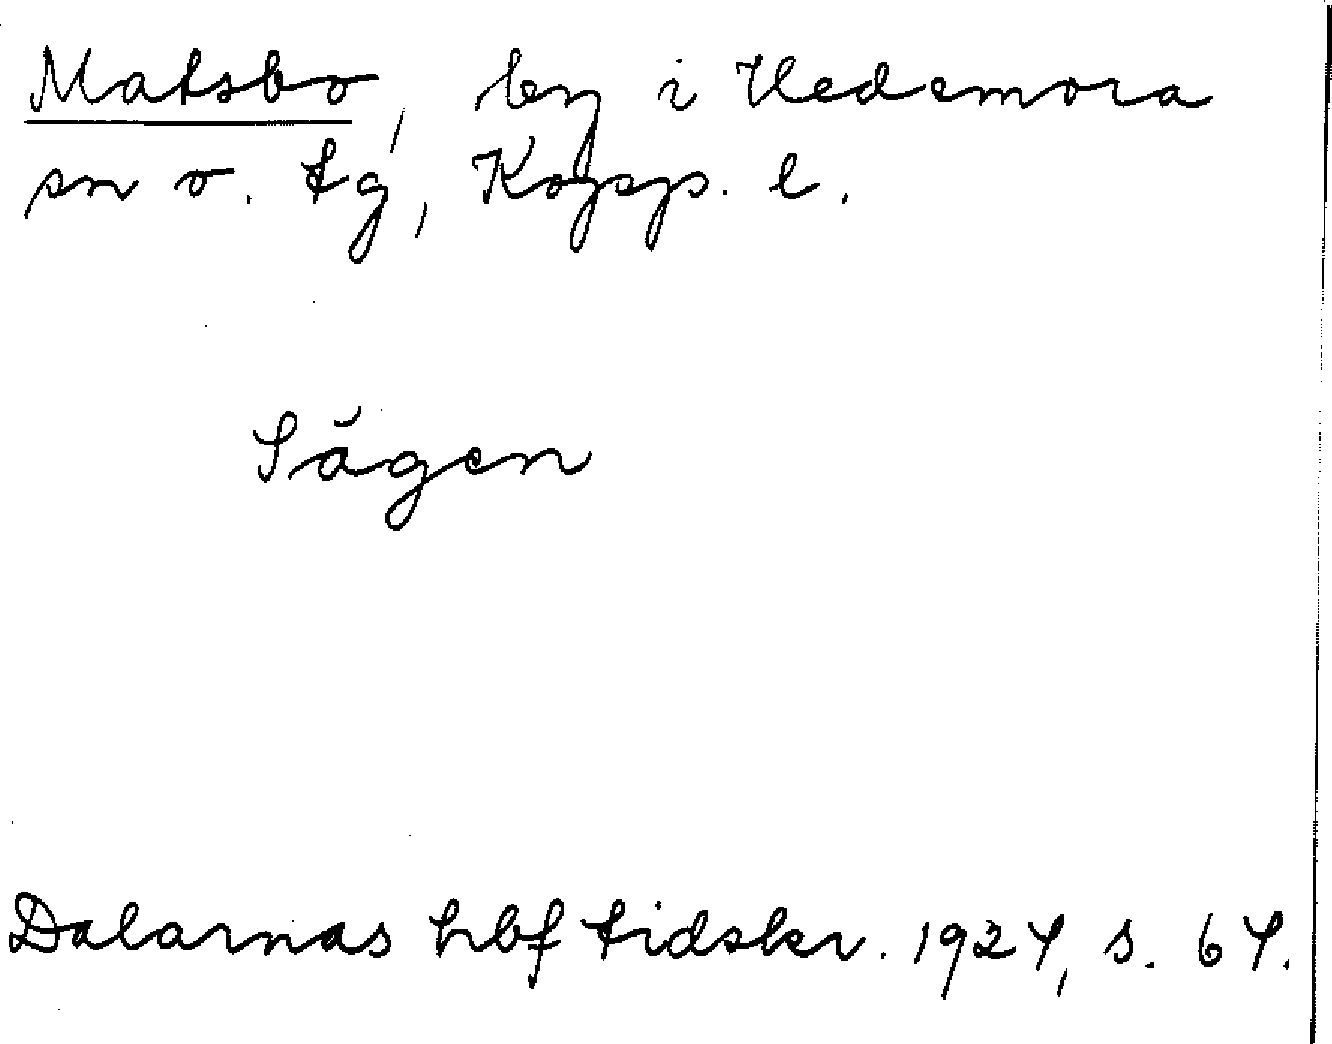 Matsbo, by i Hedemora
sn o. tg, Kopp. l.
Sägen
Dalarnas hbf tidskr. 1927, s. 67.